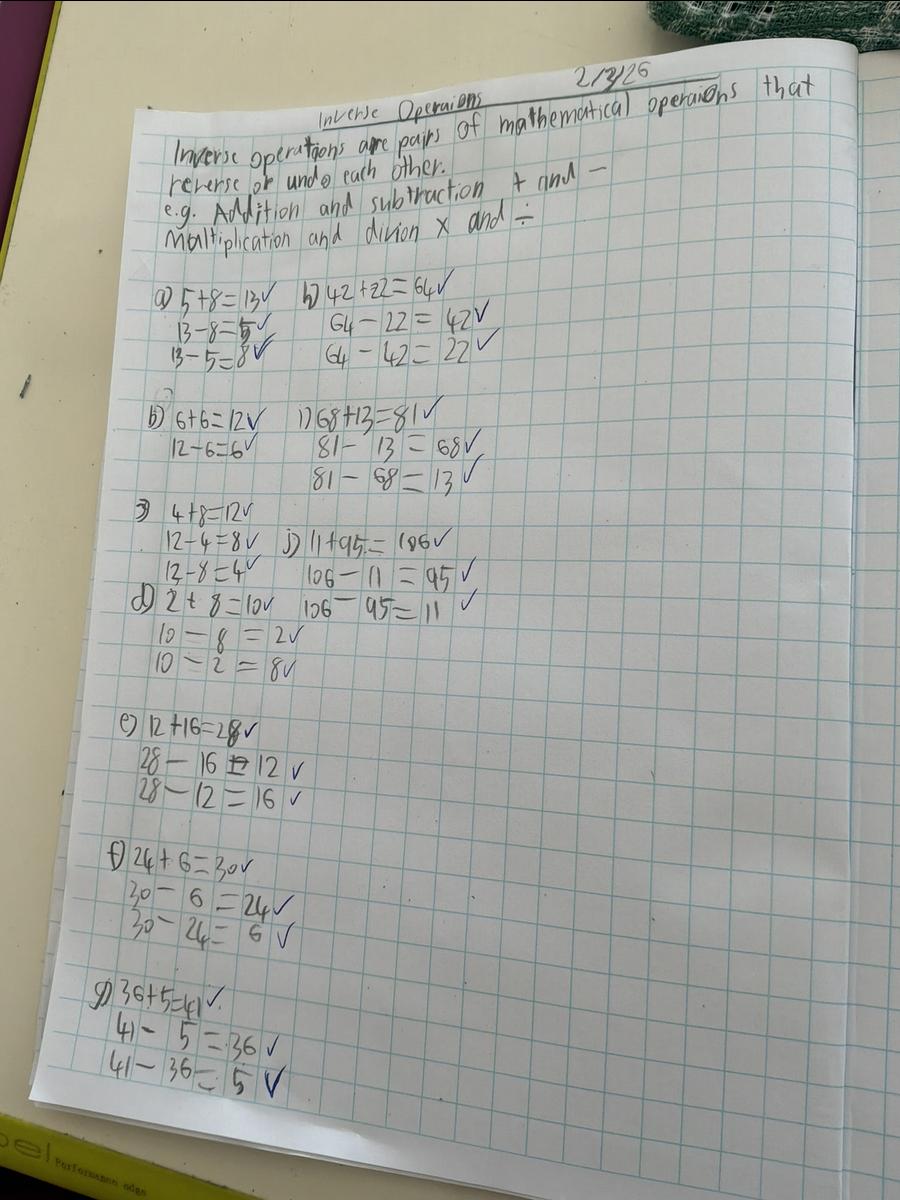 2/3/26
Inverse Operaions
Inverse operations are pairs of mathematical operaions that
reverse or undo each other.
e.g. Addition and subtraction + and −
Multiplication and divion × and ÷
a) 5+8=13✓
13−8=5✓
13−5=8✓
b) 6+6=12✓
12−6=6✓
4+8=12✓
12−4=8✓
12−8=4✓
d) 2+8=10✓
10−8=2✓
10−2=8✓
e) 12+16=28✓
28−16=12✓
28−12=16✓
f) 24+6=30✓
30−6=24✓
30−24=6✓
g) 36+5=41✓
41−5=36✓
41−36=5✓
h) 42+22=64✓
64−22=42✓
64−42=22✓
i) 68+13=81✓
81−13=68✓
81−68=13✓
j) 11+95=106✓
106−11=95✓
106−95=11✓
Performance edge